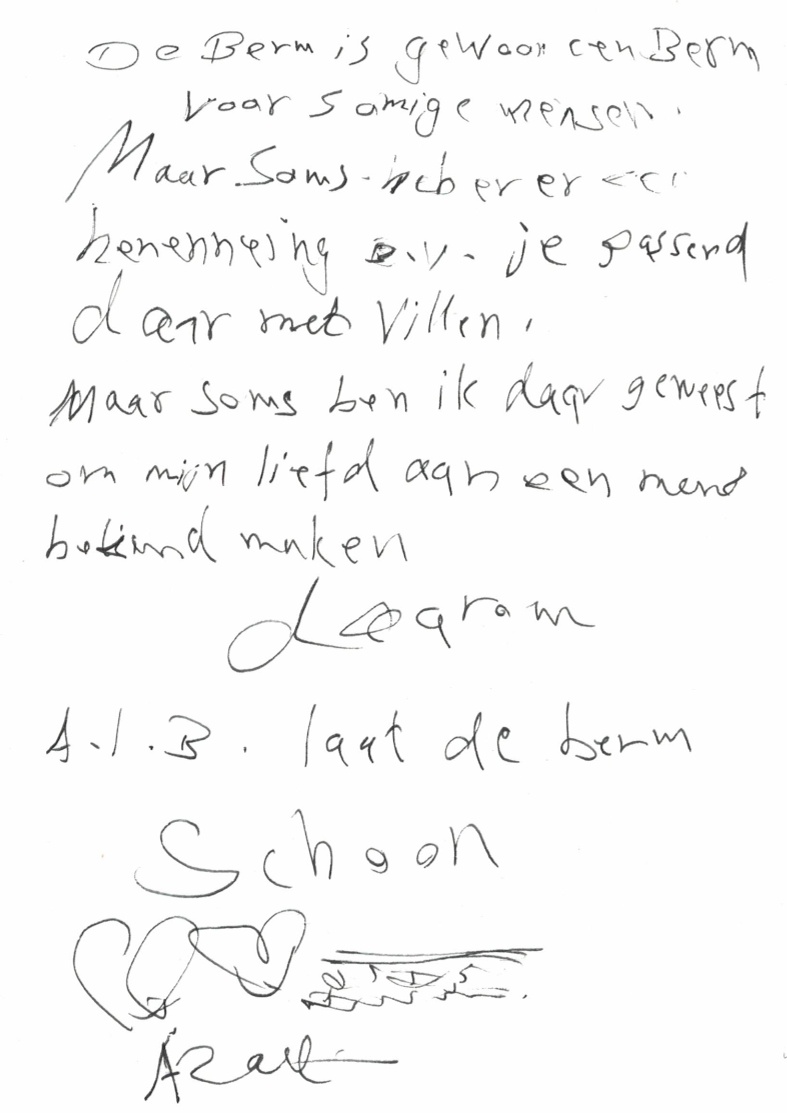 De Berm is gewoon een Berm
voor somige mensen.
Maar Soms er er
benenneing e.v. je passend
daar met Villen.
Maar soms ben ik daar geweest
om mijn liefd aan een mens
bekend maken
A.I.B. laat de berm
Schoon
Azad